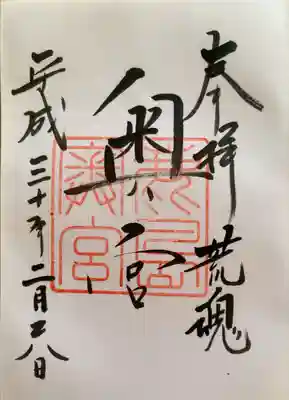 奉拝 荒魂
奥宮
平成三十年二月二八日
奥宮